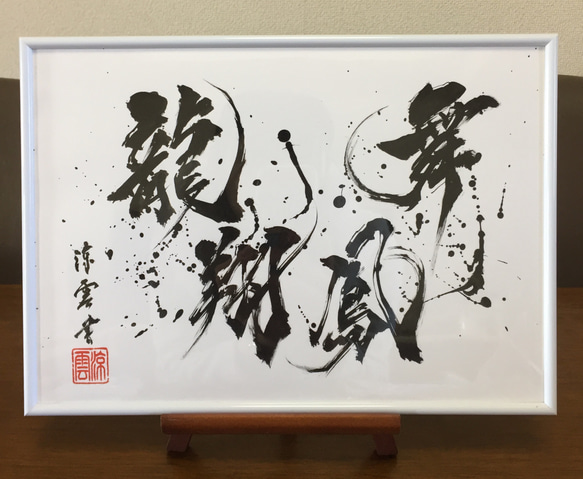 龍翔鳳舞
涼雲書
涼雲